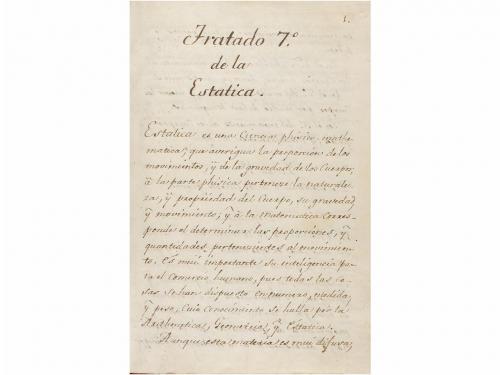 1.
Tratado 7.º
de la
Estatica.
Estatica es una Ciencia phisico mathe-
matica, que averigua la proporcion de los
movimientos, ÿ de la gravedad de los Cuerpos;
à la parte phisica perteneze la naturale-
za, ÿ propriedad del Cuerpo, su gravedad
ÿ movimiento; ÿ à la matematica corres-
ponde el determinar las proporciones, ÿ
quantidades pertenezientes al movimien-
to. Es mui importante su inteligencia pa-
ra el Comercio humano, pues todas las co-
sas se han dispuesto en numero, medida,
ÿ peso, Cuio Conocimiento se halla por la
Arithmetica, Geometria, ÿ Estatica.
Aunque esta materia es mui difusa,